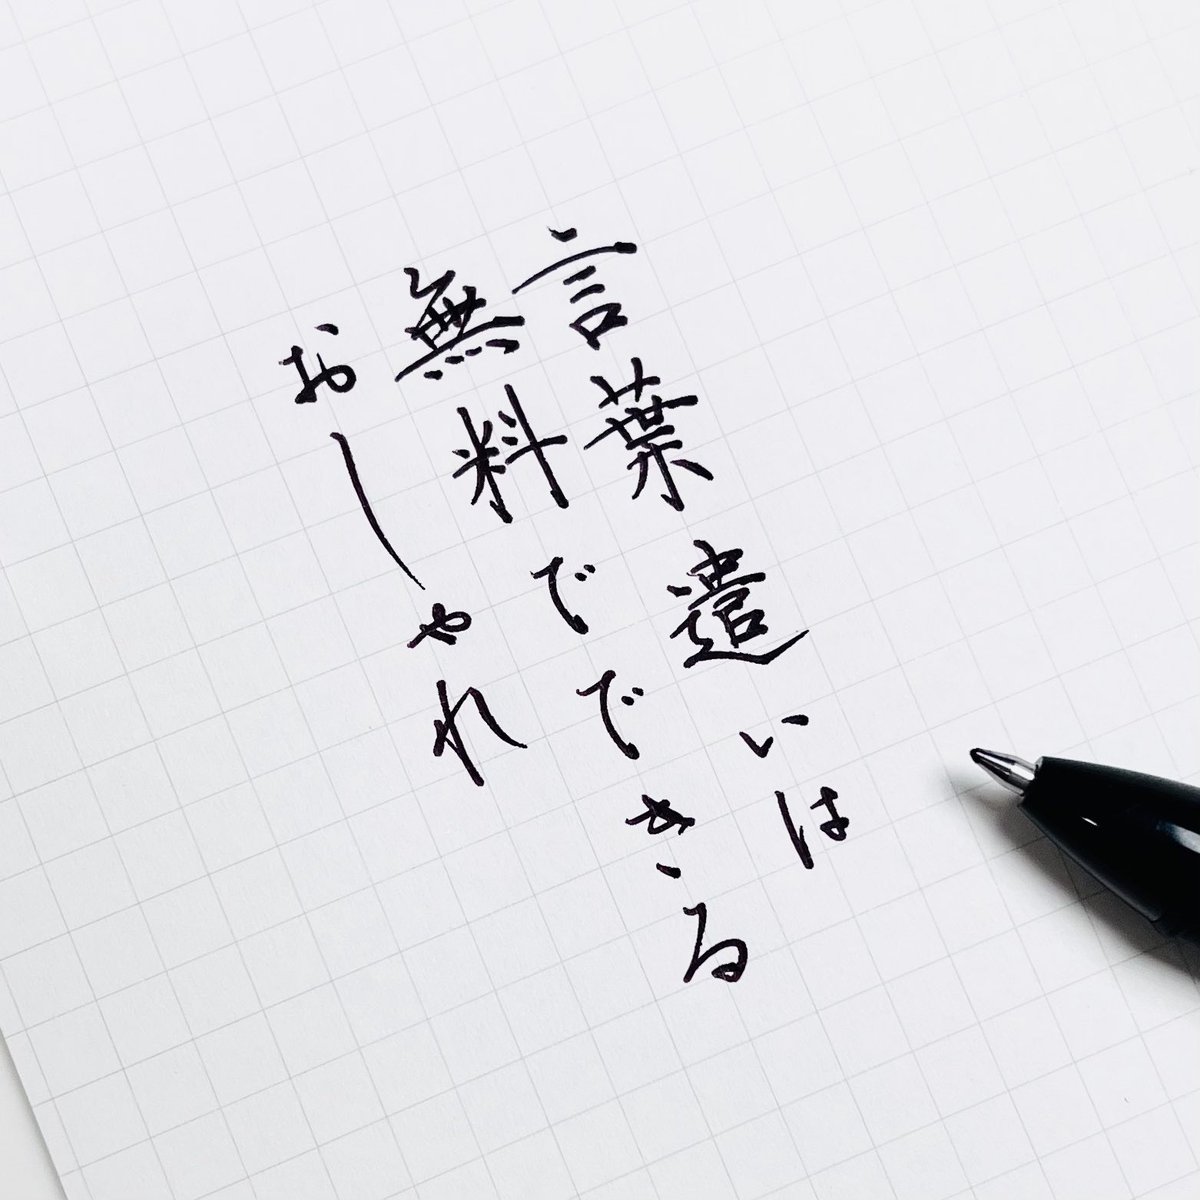 言葉遣いは
無料でできる
おしゃれ